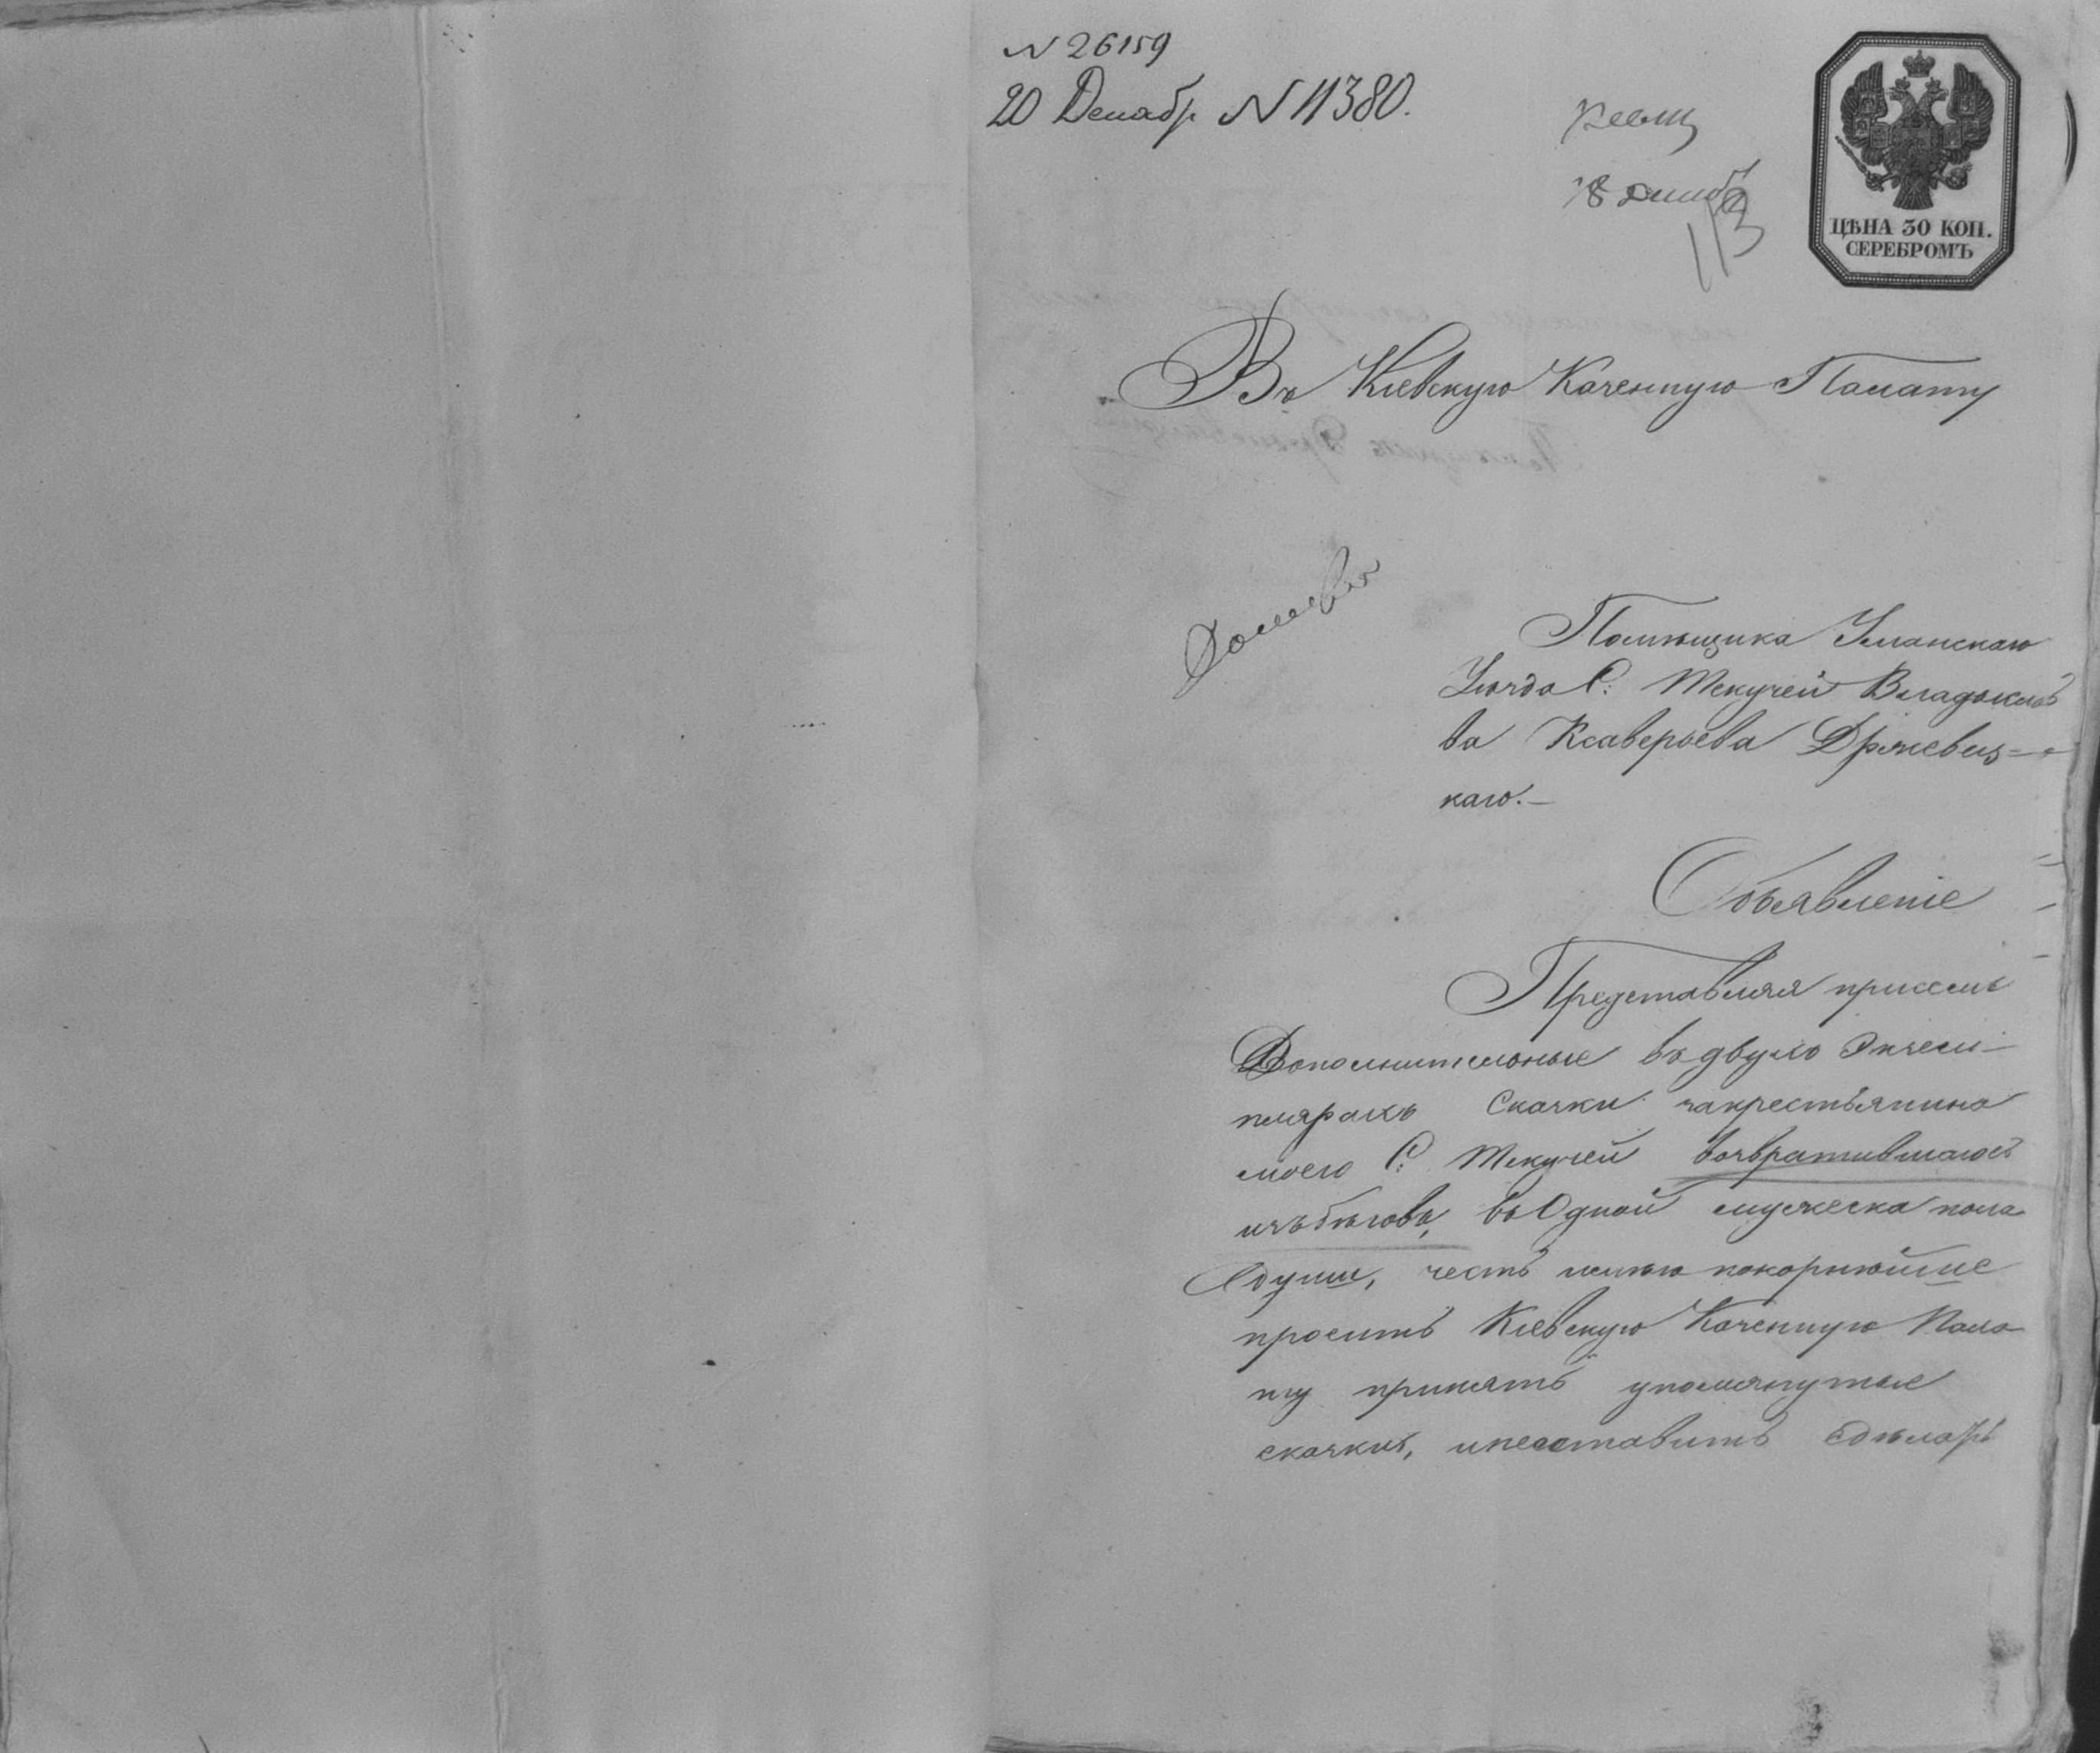 N 26159
20 Декабр N 11380.
ревиз
18 декаб
113
ЦѢНА 30 КОП.
СЕРЕБРОМЪ
Въ Кіевскую Казенную Палату
Помѣщика Уманскаго
Уѣзда С: Текучей Владислав
ва Ксаверьева Држевец=
каго.—
Объявленіе
Представляя присемъ
Дополнительные въ двухъ Экзем-
плярахъ Сказки закрестьянина
моего С: Текучей возвратившагося
изъ бѣговъ, въ Одной мужеска пола
Души, честь имѣю покорнѣйше
просить Кіевскую Казенную Пала
ту принять упомянутые
сказки, и неоставить сдѣлать